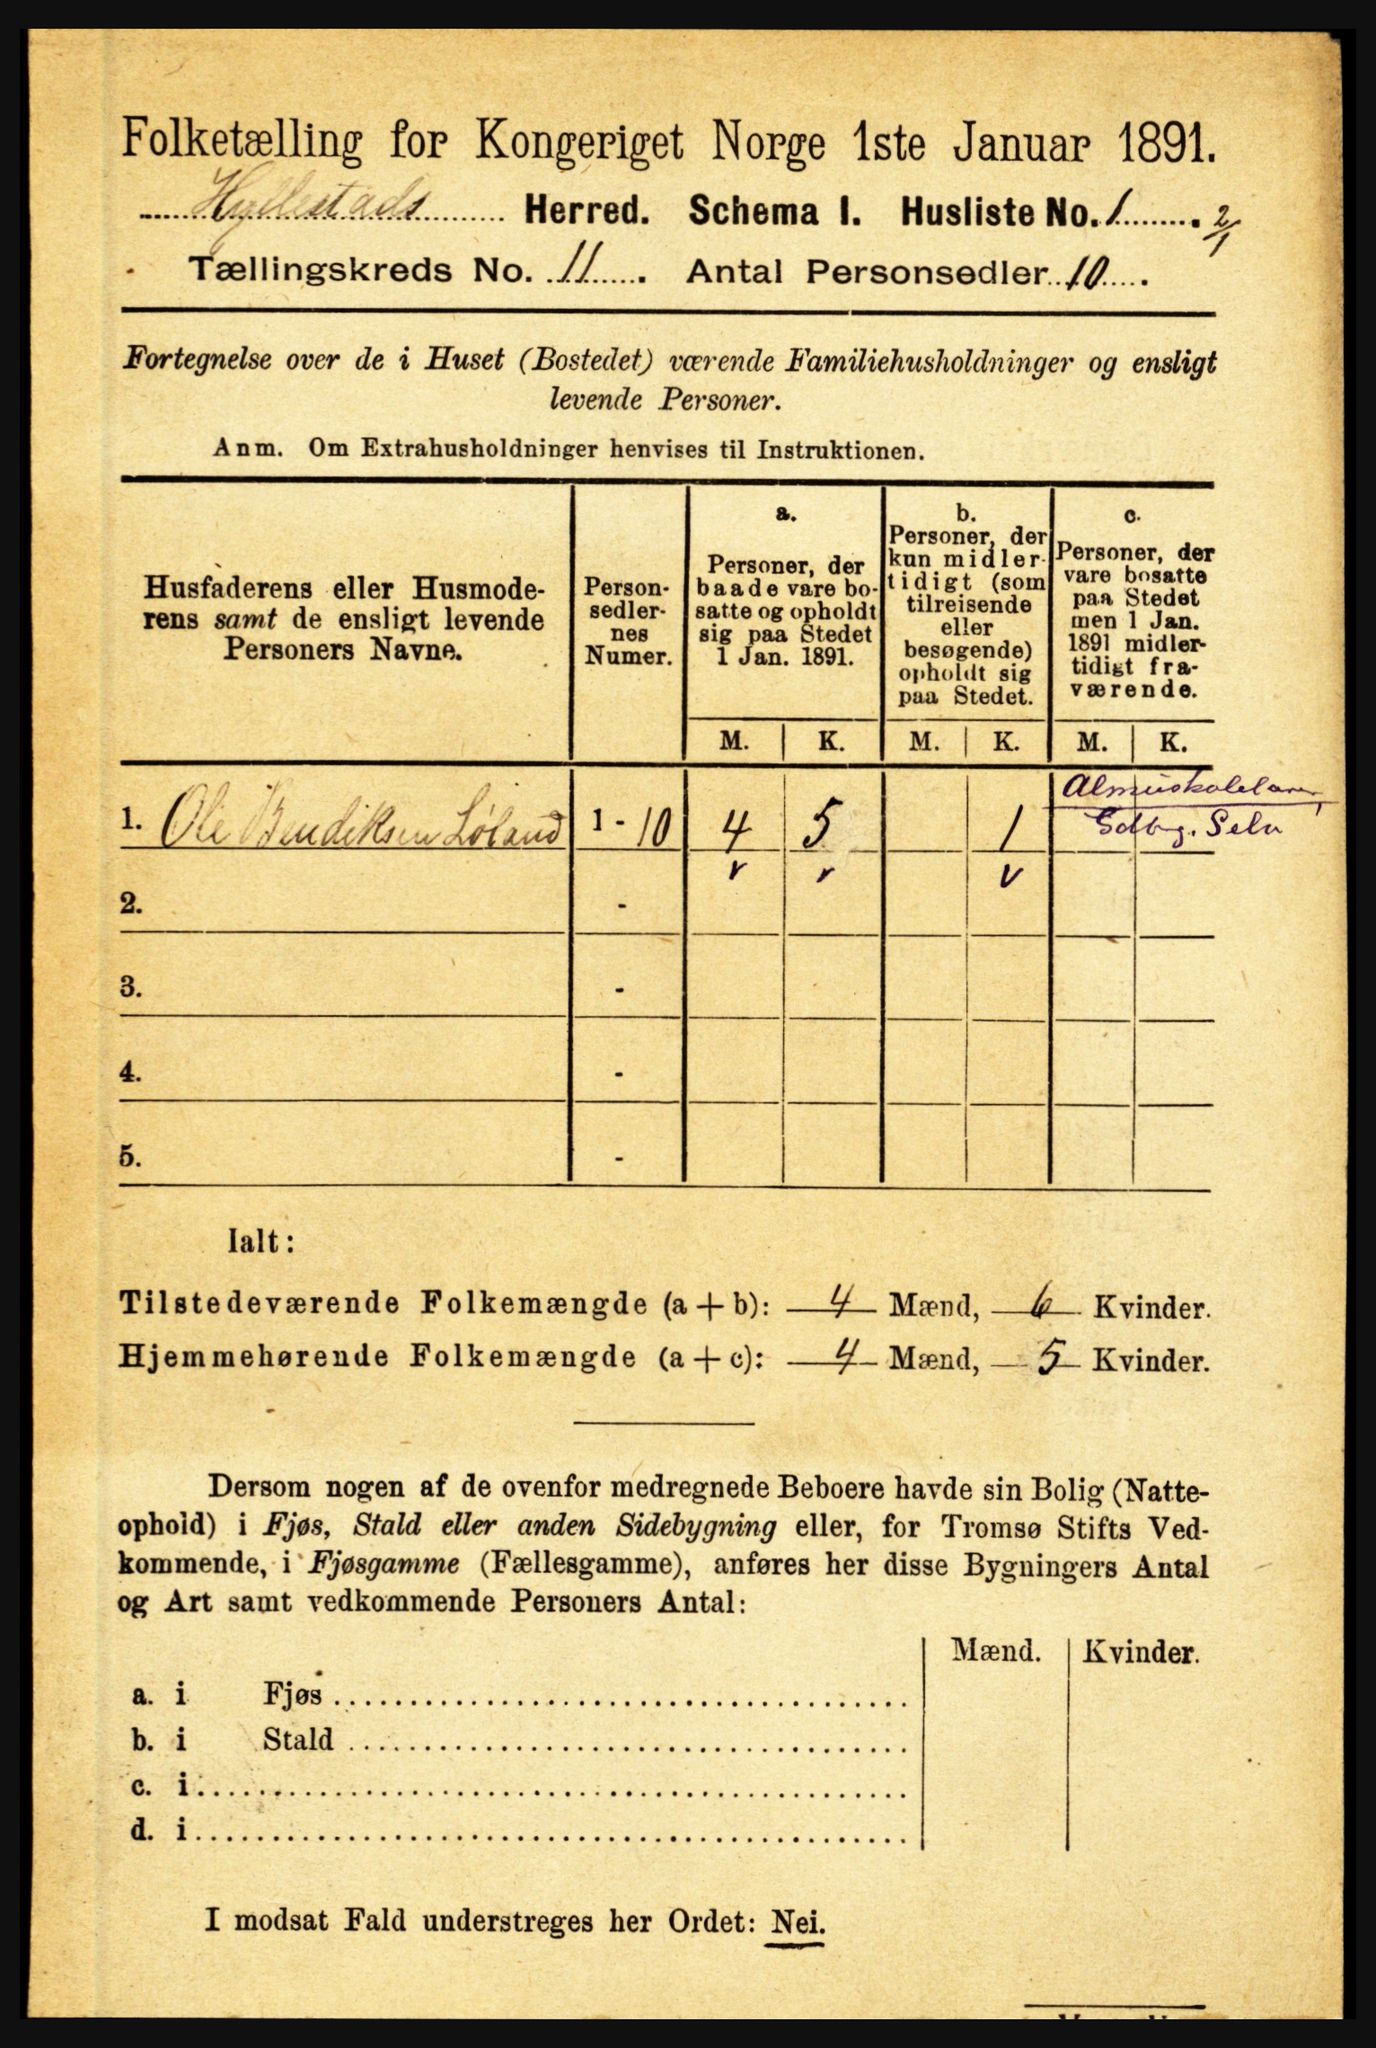 Folketælling for Kongeriget Norge 1ste Januar 1891.
Hyllestads Herred. Schema I. Husliste No. 1. 2/1
Tællingskreds No. 11. Antal Personsedler 10.
Fortegnelse over de i Huset (Bostedet) værende Familiehusholdninger og ensligt
levende Personer.
Anm. Om Extrahusholdninger henvises til Instruktionen.
Husfaderens eller Husmode-
rens samt de ensligt levende
Personers Navne.
Person-
sedler-
nes
Numer.
a.
Personer, der
baade vare bo-
satte og opholdt
sig paa Stedet
1 Jan. 1891.
b.
Personer, der
kun midler-
tidigt (som
tilreisende
eller
besøgende)
opholdt sig
paa Stedet.
c.
Personer, der
vare bosatte
paa Stedet
men 1 Jan.
1891 midler-
tidigt fra-
værende.
M. K. M. K. M. K.
Almuskolelærer,
1. Ole Bendiksen Løland 1 - 10 4 5 1 Gdbg. Selv
v v v
2. -
3. -
4. -
5. -
Ialt:
Tilstedeværende Folkemængde (a + b): 4 Mænd, 6 Kvinder.
Hjemmehørende Folkemængde (a + c): 4 Mænd, 5 Kvinder.
Dersom nogen af de ovenfor medregnede Beboere havde sin Bolig (Natte-
ophold) i Fjøs, Stald eller anden Sidebygning eller, for Tromsø Stifts Ved-
kommende, i Fjøsgamme (Fællesgamme), anføres her disse Bygningers Antal
og Art samt vedkommende Personers Antal:
Mænd. Kvinder.
a. i Fjøs
b. i Stald
c. i
d. i
I modsat Fald understreges her Ordet: Nei.